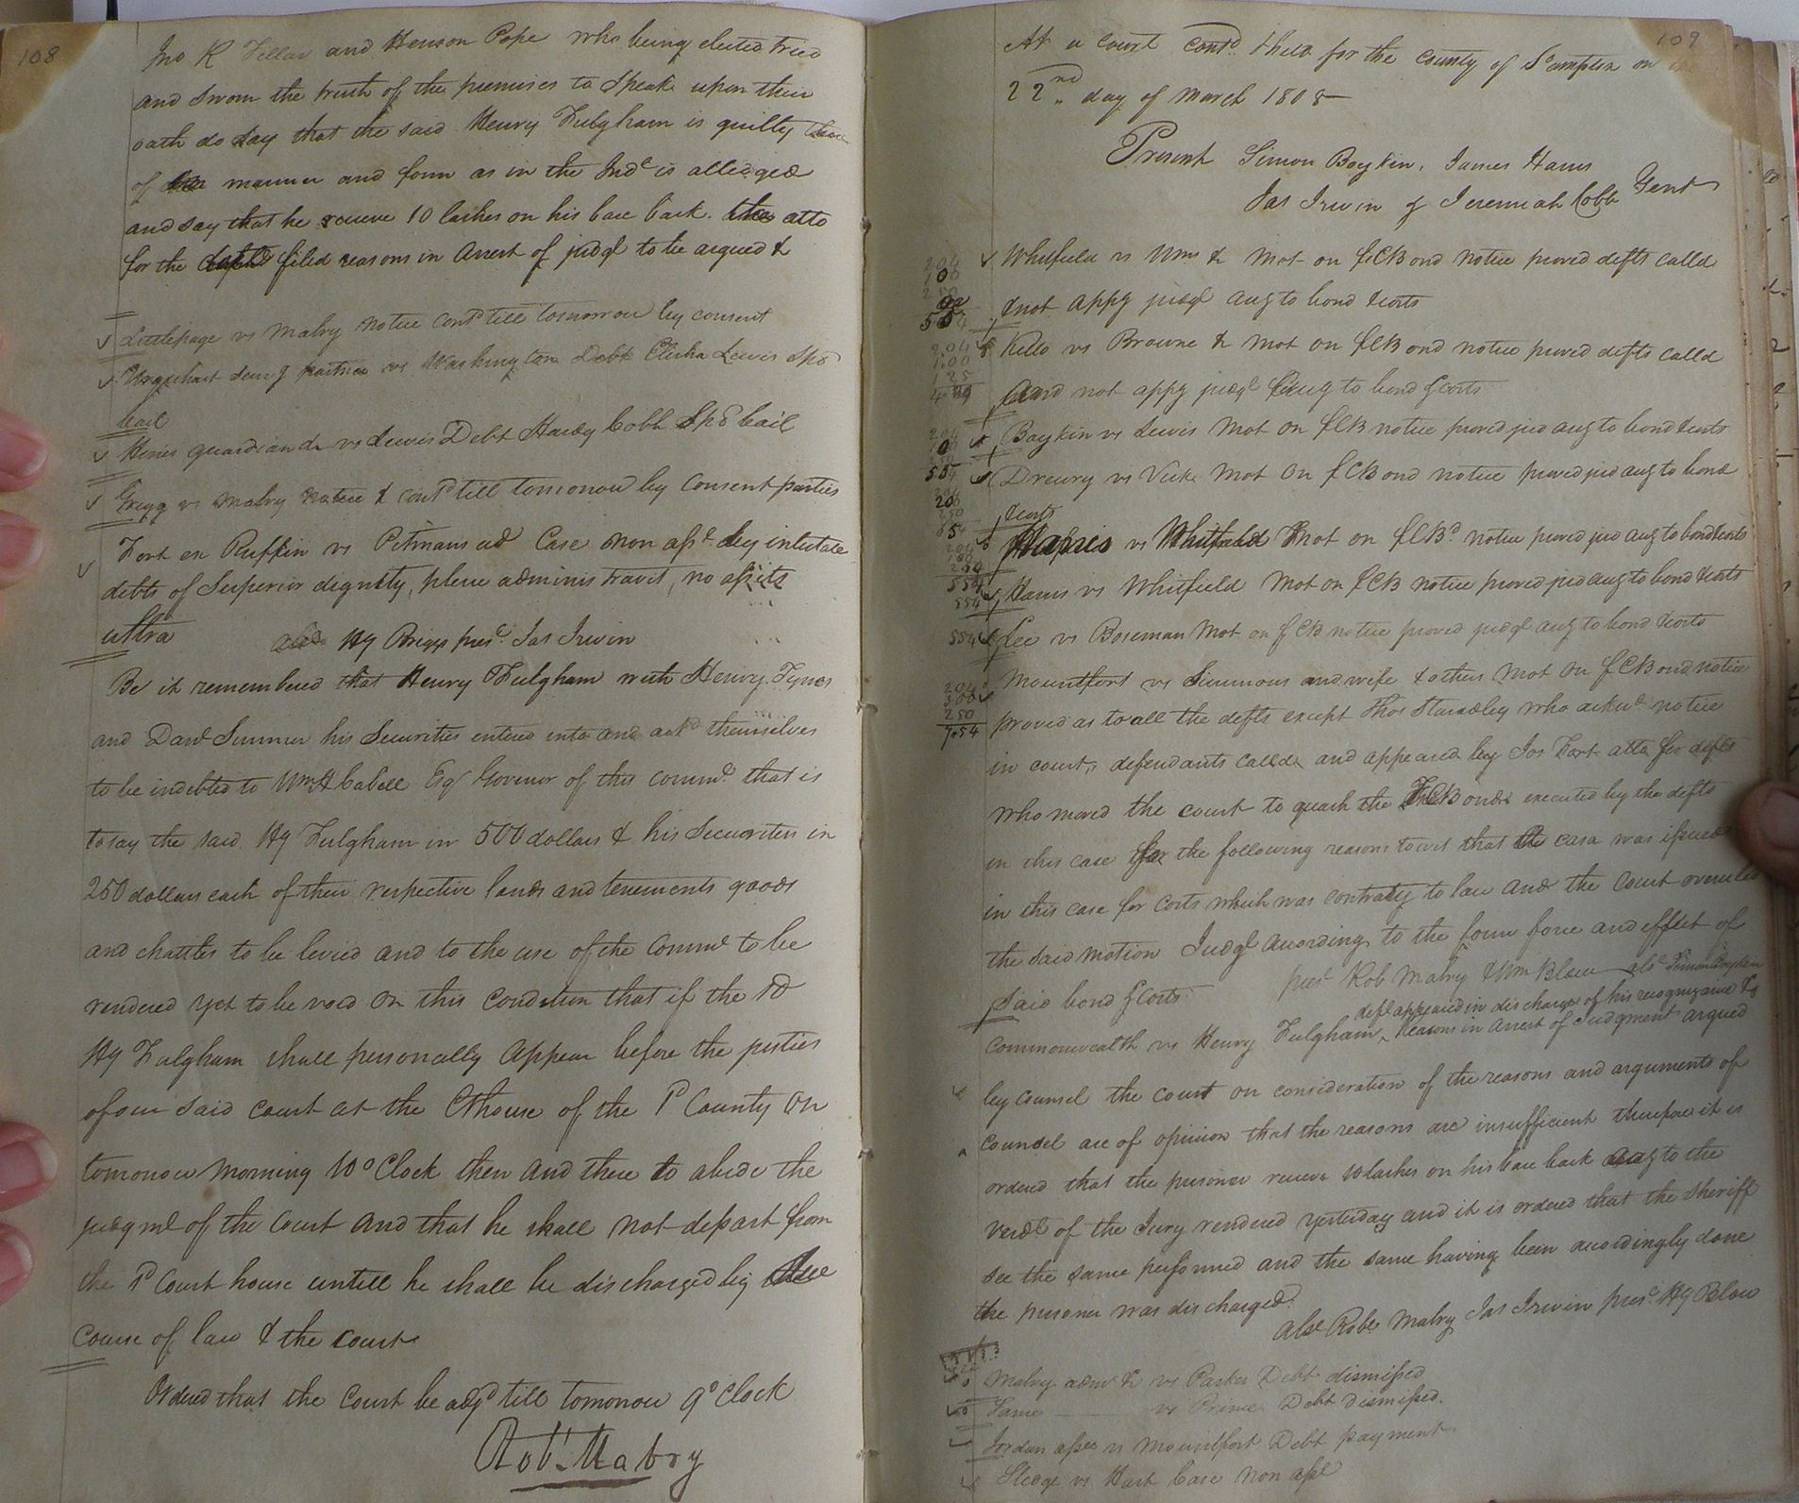 108
Jno K Fellar and Henson Pope who being elected tried
and sworn the truth of the premises to speak upon their
oath do say that the said Henry Fulgham is guilty
of manner and form as in the Indt is alledged
and say that he receve 10 lashes on his bare back. the atto
for the filed reasons in Arrest of judgt to be argued &
Littlepage vs Mabry notice contd till tomorrow by consent
Urquhart surv partner vs Washington Debt Elisha Lewis Spd
bail
Hines guardian &c vs Lewis Debt Hardy Cobb Spd bail
Gregg vs Mabry notice & contd till tomorrow by consent parties
Fort ex Ruffin vs Pitmans ad Case non asst. by intestate
debts of Superior dignity, plene administravit, no assets
ultra
abs Hy Briggs prest Jas Irwin
Be it remembered that Henry Fulgham with Henry Tynes
and Danl Simmer his Securities entered into and ackd themselves
to be indebted to Wm H Cabell Esqr Govenor of this commt. that is
to say the said Hy Fulgham in 500 dollars & his Securities in
250 dollars each of their respective lands and tenements goods
and chattles to be levied and to the use of the Commt to be
rendered yet to be void on this condition that if the sd
Hy Fulgham shall personally appear before the justies
of our said court at the Cthouse of the sd County on
tomorow morning 10 o Clock then and there to abide the
judgmt of the Court and that he shall not depart from
the sd Court house untill he shall be discharged by
course of law & the court
Ordered that the Court be adjd till tomorow 9 o Clock
Robt. Mabry
109
At a court contd & held for the county of Sampton on the
22nd. day of March 1808
Present Simon Boykin, James Harris
Jas Irwin & Jeremiah Cobb Gent
Whitfield vs Wms & Mot on f C Bond notice proved defts calld
& not appg judgt aug to bond & costs
Kello vs Browne & mot on f C Bond notice proved defts calld
and not appg judgt aug to bond & costs
Boykin vs Lewis Mot on f C B notice proved jud aug to bond & costs
Drewry vs Vick Mot on f C Bond notice proved jud aug to bond
& costs
Harris vs Whitfield Mot on f C Bd notice proved jud aug to bond & costs
Harris vs Whitfield Mot on f C B notice proved jud aug to bond & costs
Lee vs Boseman Mot on f C B notice proved judgt aug to bond & costs
Mountfort vs Simmons and wife & others Mot on f C Bond notice
proved as to all the defts except Thos who acknd notice
in court, defendants called and appeared by Jos Fort atto for defts
who moved the court to quash the F C Bonds executed by the defts
in this case for the following reasons towit that the casa was issued
in this case for costs which was contrary to law and the court overuled
the said motion Judgt according to the form force and effect of
said bond & costs
prest Rob Mabry & Wm Blow abst Simon Boykin
deft appeared in discharge of his recognizance &
Commonwealth vs Henry Fulgham, Reasons in arrest of Judgment argued
by counsel the court on consideration of the reasons and arguments of
councel are of opinion that the reasons are insufficient therefore it is
ordered that the prisoner receve 10 lashes on his bare back aug to the
verdt of the Jury rendered yesterday and it is ordered that the Sheriff
see the same performed and the same having been accordingly done
the prisoner was discharged.
abst Robt Mabry Jas Irwin prest Hy Blow
Mabry admr &c vs Parker Debt dismissed
Same vs Prince Debt dismissed.
Jordan assee vs Mountfort Debt payment
Sledge vs Hart Case non asst